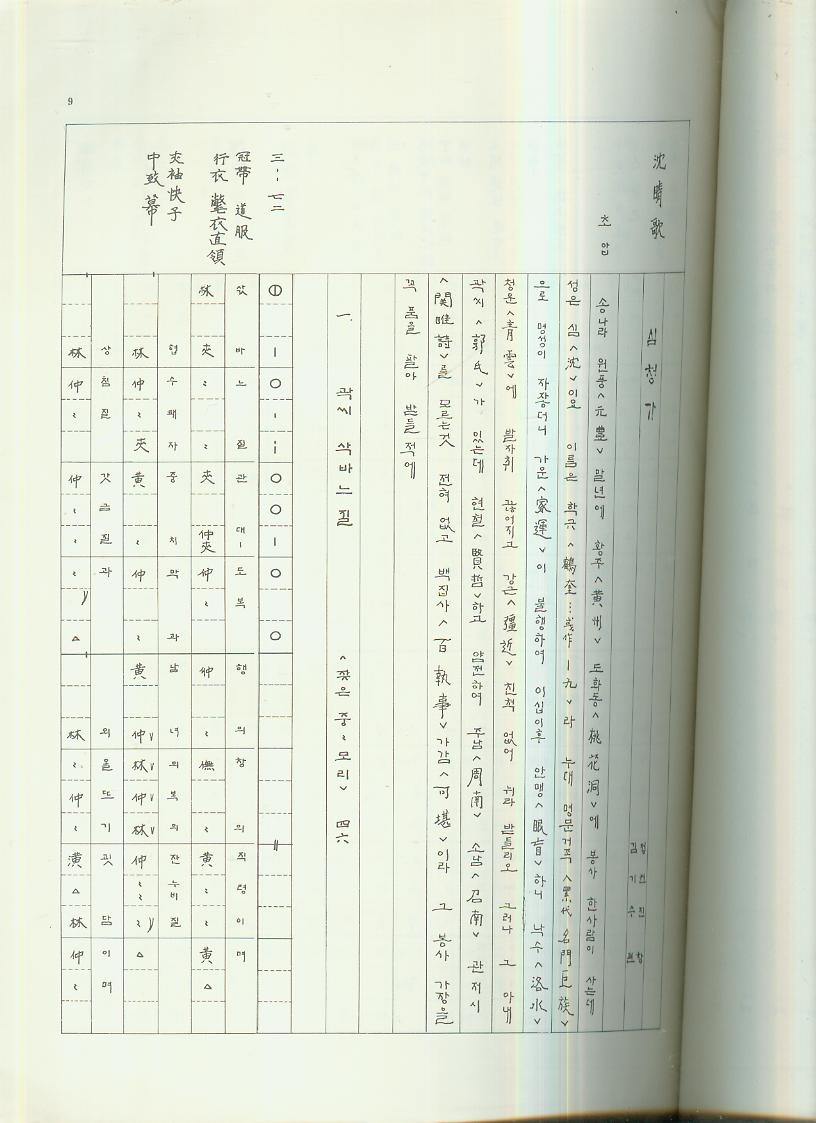 9
沈晴歌
초압
심청가
정권진 창
김기수
송나라 원풍<元豊> 말년에 황주<黃州> 도화동<桃花洞>에 봉사 한사람이 사는데
성은 심<沈>이오 이름은 학규<鶴奎…或作ㅣ九>라 누대 명문거족<累代 名門巨族>
으로 명성이 자장더니 가운<家運>이 불행하여 이십이후 안맹<眼盲>하니 낙수<洛水>
청운<靑雲>에 발자취 끊어지고 강근<彊近> 친척 없어 뉘라 받들리오 그러나 그 아내
곽씨<郭氏>가 있는데 현철<賢哲>하고 얌전하여 주남<周南> 소남<召南> 관저시
<関雎詩>를 모르는것 전혀 없고 백집사<百執事>가감<可堪>이라 그 봉사 가장을
꼭 품을 팔아 받들적에
一. 곽씨 삭바느질 <잦은 중〻모리> 四六
三ㅣ七二
冠帶 道服
行衣 氅衣直領
夾袖快子
中致幕
삯바느질관대ㅣ도복행의창의직령이며
林夾〻〻夾仲夾仲〻仲〻憮〻黃〻〻黃△
협수쾌자중치막과남녀의복의잔누비질
林仲〻夾黃〻仲〻黃仲林仲林仲〻〻〻△
상침질갓끔질과외올뜨기꾓담이며
林仲〻仲〻〻〻△林〻仲〻潢△林仲〻